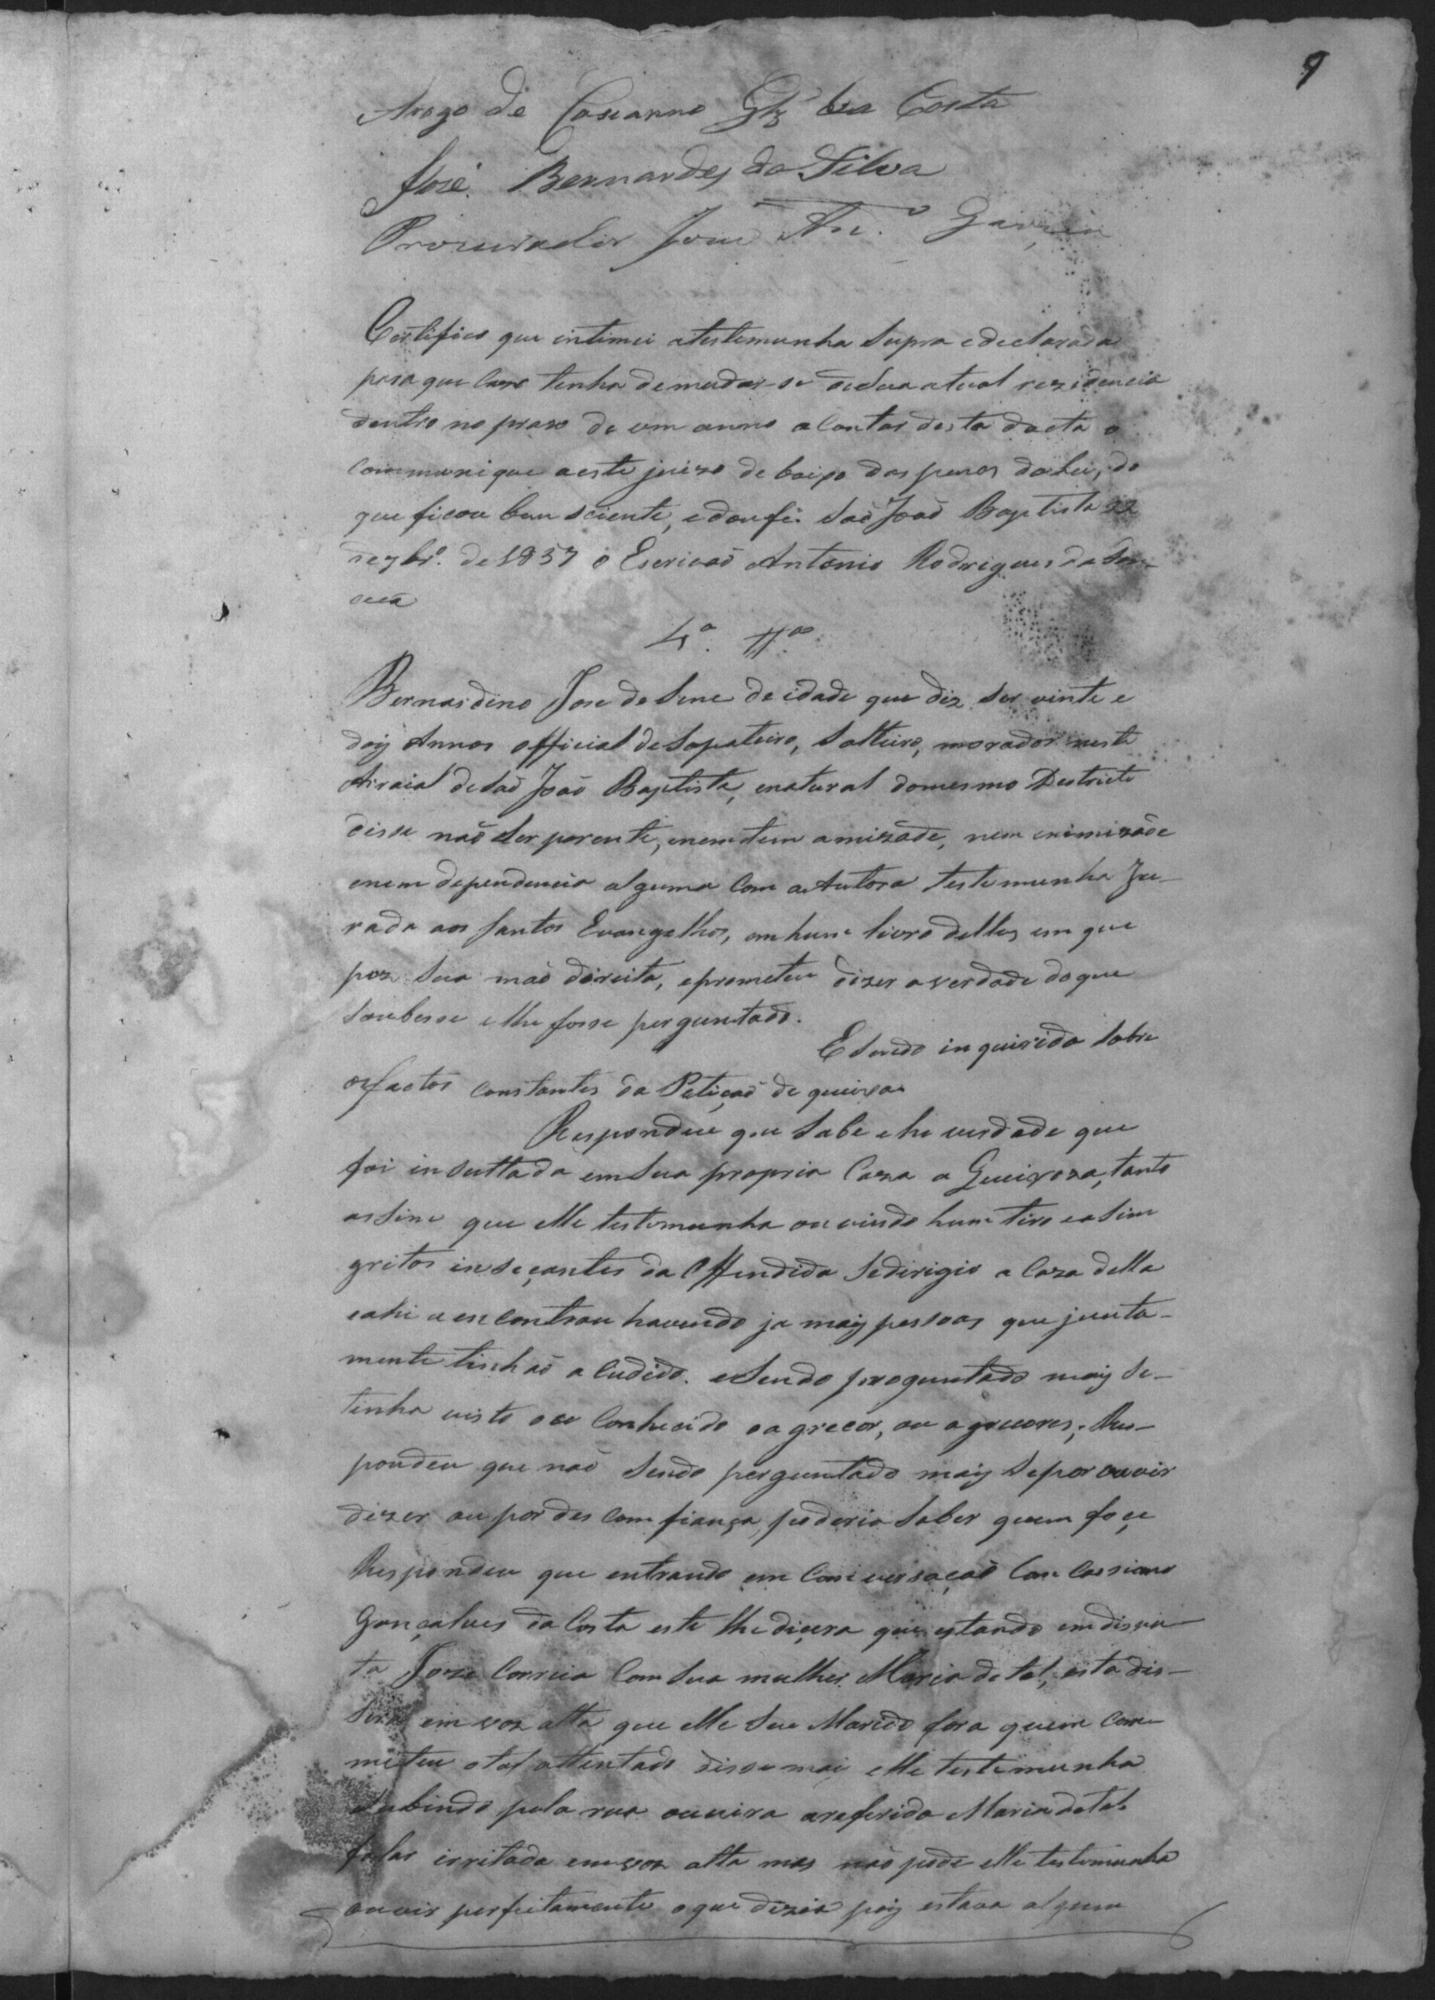 9
Arogo de Cascianno Glz da Costa
José Bernardes da Silva
Procurador José An.º
Certifico que intimei atestemunha supra edeclarada
para que caso tenha demudar-se desua atual rezidencia
dentro no praso de um anno a contar desta dacta o
communique aeste juizo de baixo das penas da Lei, do
que ficou bem sciente, edou fé. Saõ Joaõ Baptista 22
dezbrº. de 1857 o Escrivaõ Antonio Rodrigues da Fon-
ceca
4ª. ttª.
Bernardino Jose de Sene de idade que diz ser vinte e
dois Annos official de Sapateiro, Solteiro, morador neste
Arraial de Saõ Joaõ Baptista, enatural domesmo Destricto
disse naõ ser parente, enem tem amizade, nem inimizade
enem dependencia alguma com aAutora testemunha Ju-
rada aos Santos Evangelhos, em hum livro delles em que
poz sua maõ direita, eprometeu dizer averdade doque
soubesse elhe fosse perguntado.
E sendo inquirido sobre
osfactos constantes da Petiçaõ de queixa.
Respondeu que sabe ehe verdade que
foi insultada emsua propria Caza a Queixoza, tanto
assim que elle testemunha ouvindo hum tiro easim
gritos inseçantes da Offendida sedirigio a Caza della
eahi a encontrou havendo ja mais pessoas que junta-
mente tinhaõ acudido. eSendo proguntado mais se-
tinha visto ou conhecido oagreçor, ou agreçores; Res-
pondeu que naõ Sendo perguntado mais sepor ouvir
dizer ou por descomfiança poderia saber quem foçe
Respondeu que entrando em Conversaçaõ com Cassianno
Gonçalves da Costa este lhe diçera que estando em dispu-
ta Joze Correia com sua mulher Maria de tal, esta dis-
sera em voz alta que elle seu Marido fora quem com-
meteu otal attentado disse mais elle testemunha
subindo pela rua ouvira areferida Maria de tal
falar irritada emvoz alta mas naõ pode elle testemunha
ouvir perfeitamente oque dizia pois estava algum